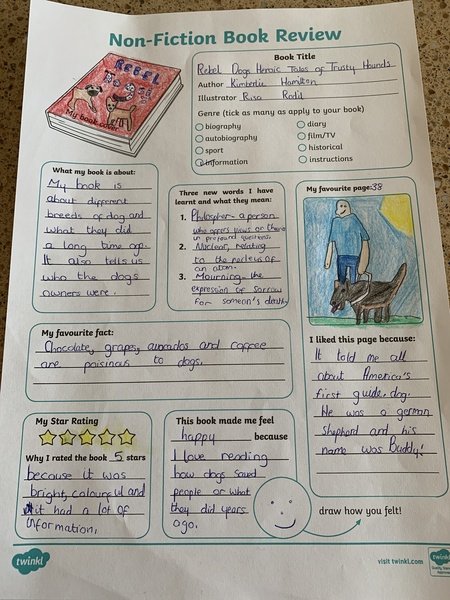 Non-Fiction Book Review
REBEL
DOGS
My book cover
Book Title
Rebel Dogs Heroic Tales of Trusty Hounds
Author Kimberlie Hamilton
Illustrator Risa Rodil
Genre (tick as many as apply to your book)
biography
autobiography
sport
information
diary
film/TV
historical
instructions
What my book is about:
My book is
about different
breeds of dog and
what they did
a long time ago.
It also tells us
who the dogs
owners were.
Three new words I have
learnt and what they mean:
1. Philospher - a person
who offers views or theories
in profound questions.
2. Nuclear, relating
to the nucleus of
an atom.
3. Mourning - the
expression of sorrow
for someon's death
My favourite page: 38
I liked this page because:
It told me all
about America's
first guide dog.
He was a german
shepherd and his
name was Buddy!
My favourite fact:
Chocolate, grapes, avacados and coffee
are poisinous to dogs.
My Star Rating
Why I rated the book 5 stars
because it was
bright, colourful and
it had a lot of
information.
This book made me feel
happy because
I love reading
how dogs saved
people or what
they did years
ago.
draw how you felt!
twinkl
visit twinkl.com
twinkl